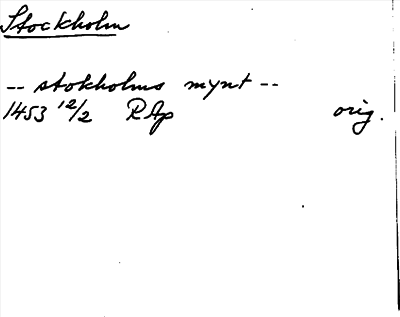 Stockholm
-- stokholms mynt --
1453 12/2 RAp orig.